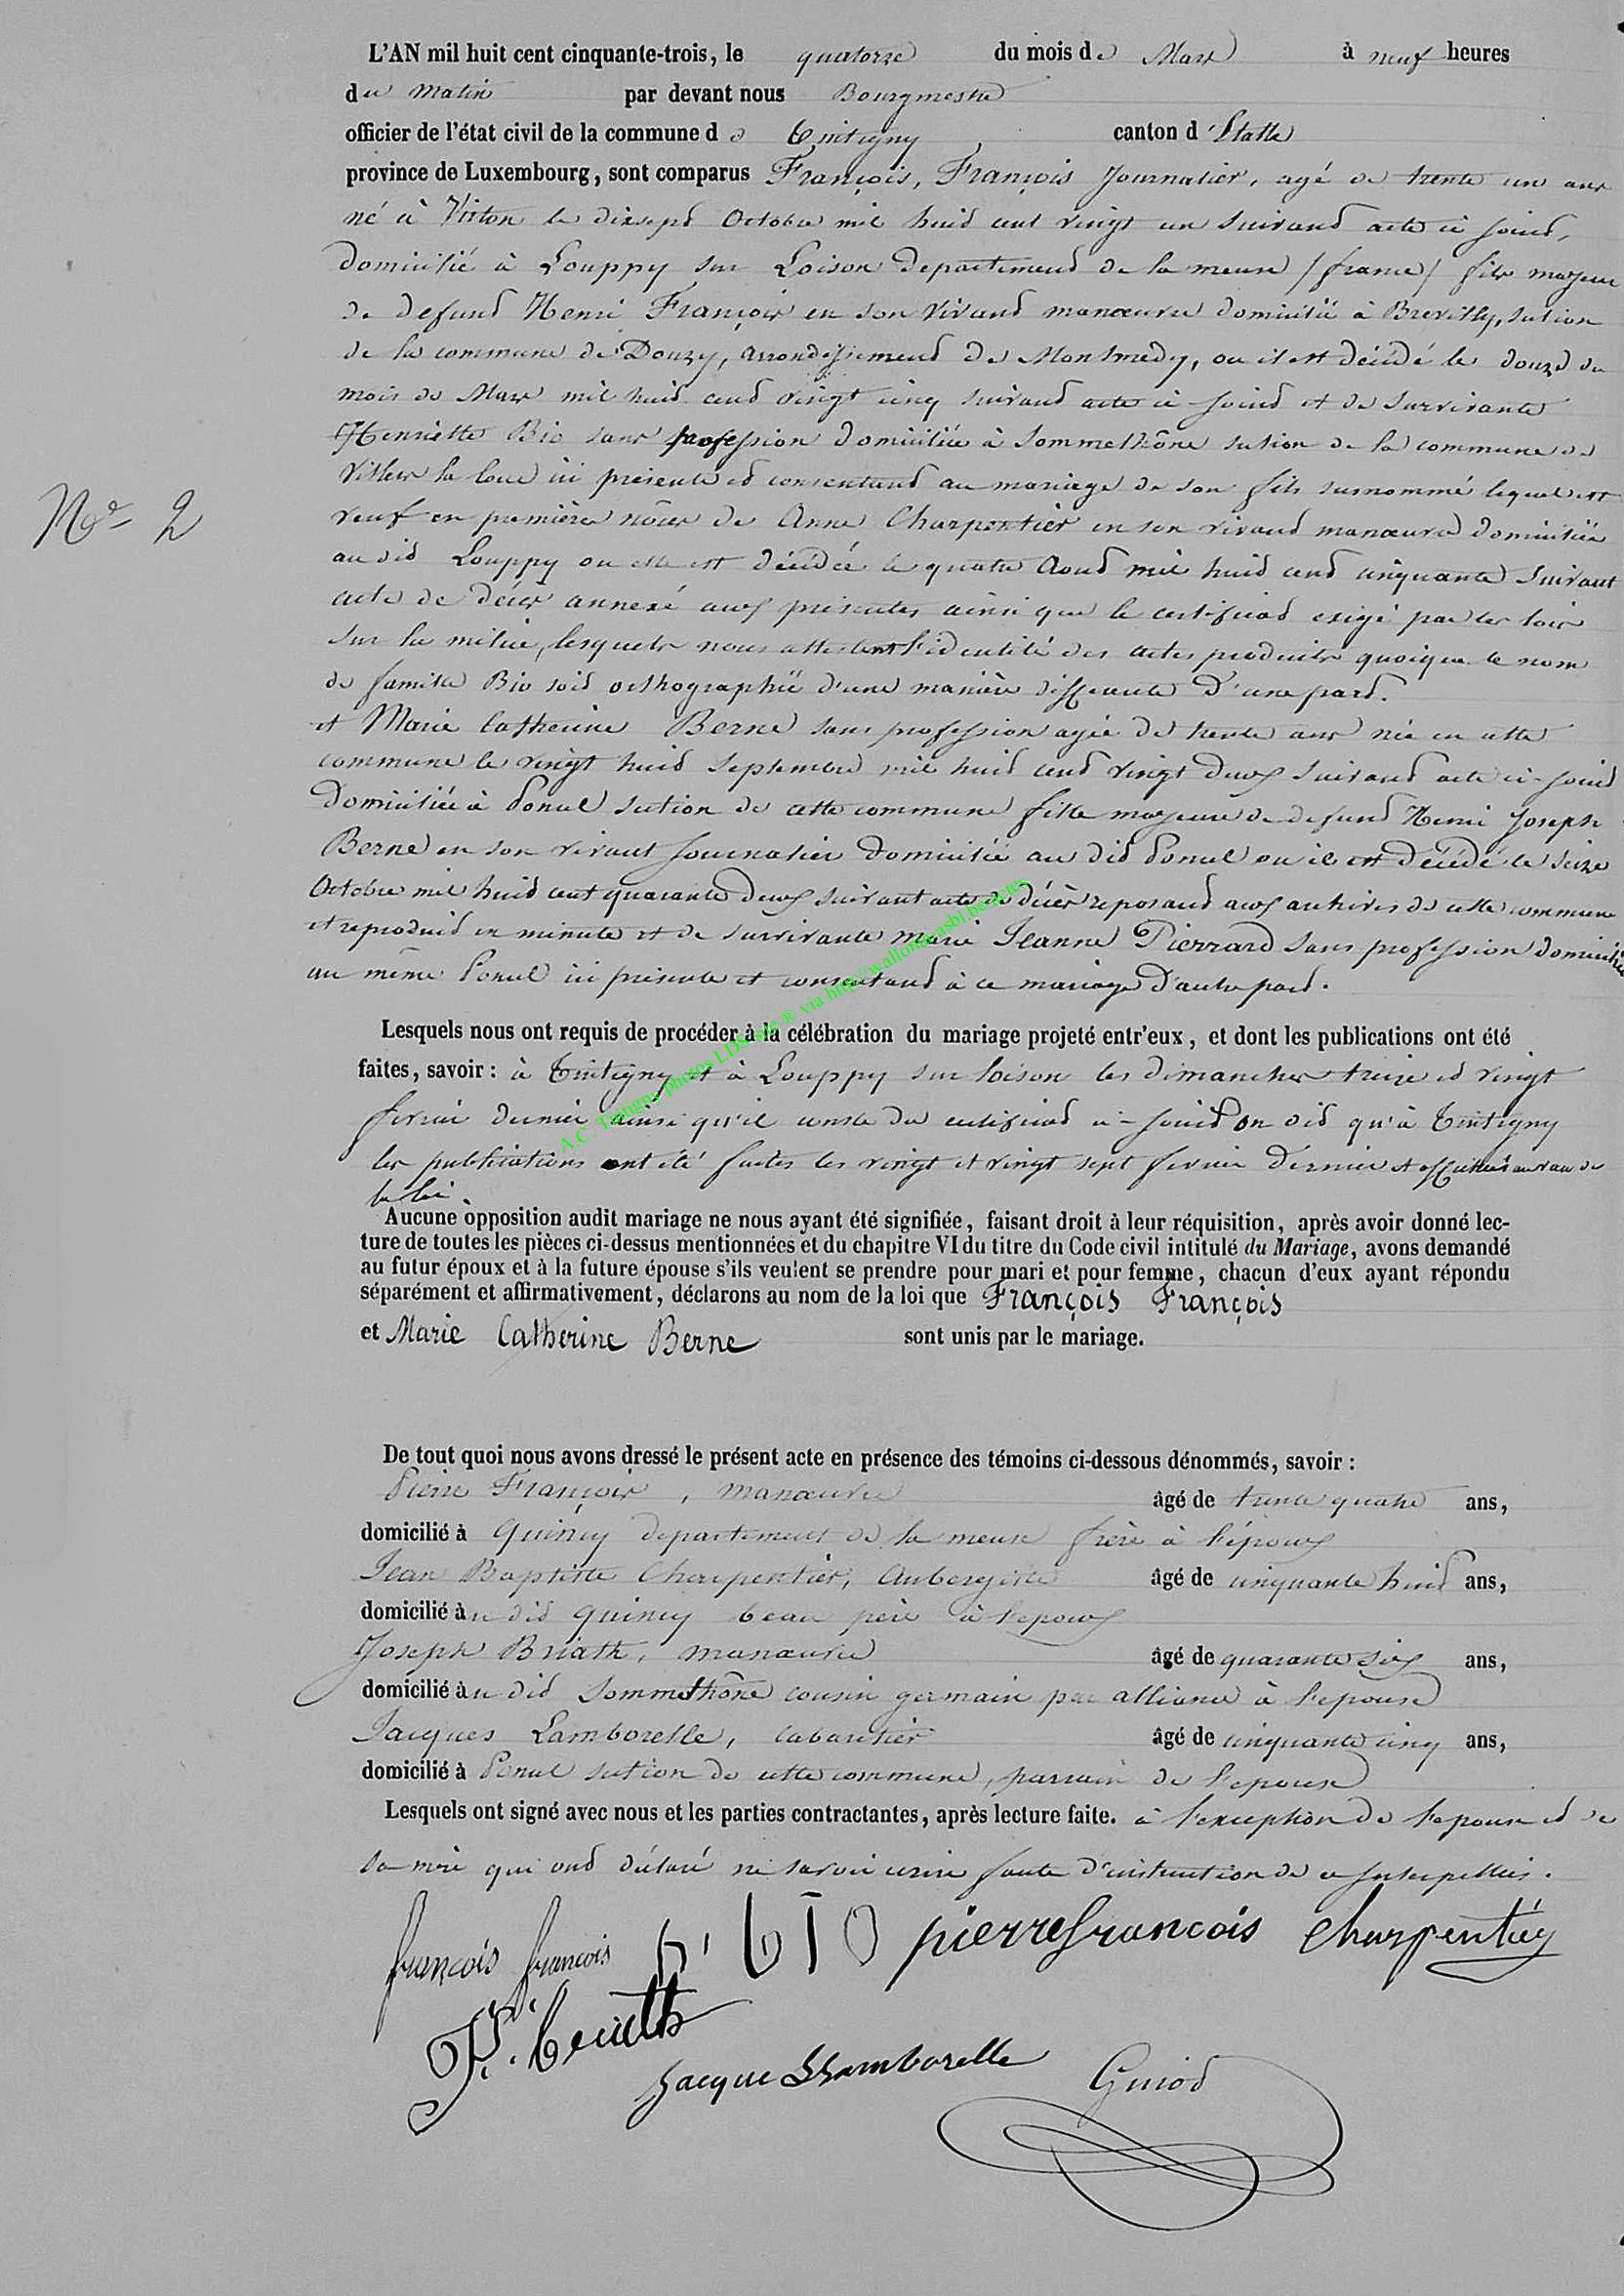 L'AN mil huit cent cinquante-trois, le quatorze du mois de Mars à neuf heures
du Matin par devant nous Bourgmestre
officier de l'état civil de la commune de Tintigny canton d'Etalle
province de Luxembourg, sont comparus François, François Journalier, agé de trente un ans
né à Virton le dixsept Octobre mil huid cent vingt un suivand acte ci joind,
domicilié à Louppy sur Loison departemend de la meuse / france / fils majeur
de defund Henri François en son vivand manœuvre domicilié à Brevilly, section
de la commune de Douzy, arrondissemend de Montmedy, ou il est décédé le douze du
mois de Mars mil huid cend vingt cinq suivand acte ci-joind et de survivante
Henriette Bio sans profession domiciliée à Sommethône section de la commune de
Villers la loue ici présente et consentand au mariage de son fils surnommé lequel est
veuf en première nôces de Anne Charpentier en son vivand manœuvre domiciliée
au did Louppy ou elle est décédée le quatre Aoud mil huid cend cinquante suivant
acte de décès annexé aux présentes ainsi que le certificad exigé par les lois
sur la milice, lesquels nous attestent l'identité des actes produits quoique le nom
de famille Bio soid orthographié d'une manière differente D'une pard.
et Marie Catherine Berne sans profession agée de trente ans née en cette
commune le vingt huid Septembre mil huid cend vingt deux suivand acte ci-joind
Domiciliée à Ponul section de cette commune fille majeure de defund Henri Joseph
Berne en son vivant journalier domicilié au did Ponul ou il est décédé le seize
Octobre mil huid cent quarante deux suivant acte de décès reposand aux archives de cette commune
et reproduid en minute et de survivante Marie Jeanne Pierrard sans profession domiciliée
au même Ponul ici présente et consentand à ce mariage D'autre pard.
N° 2
Lesquels nous ont requis de procéder à la célébration du mariage projeté entr'eux, et dont les publications ont été
faites, savoir : à Tintigny et à Louppy sur loison les dimanches treize et vingt
fevrier dernier ainsi qu'il conste du certificad ci-joind on did qu'à Tintigny
les publications ont été faites les vingt et vingt sept fevrier dernier et affichées au vœu de
la loi.
Aucune opposition audit mariage ne nous ayant été signifiée, faisant droit à leur réquisition, après avoir donné lec-
ture de toutes les pièces ci-dessus mentionnées et du chapitre VI du titre du Code civil intitulé du Mariage, avons demandé
au futur époux et à la future épouse s'ils veulent se prendre pour mari et pour femme, chacun d'eux ayant répondu
séparément et affirmativement, déclarons au nom de la loi que François François
et Marie Catherine Berne sont unis par le mariage.
De tout quoi nous avons dressé le présent acte en présence des témoins ci-dessous dénommés, savoir :
Pierre François, manœuvre âgé de trente quatre ans,
domicilié à Quincy departement de la meuse frère à l'époux
Jean Baptiste Charpentier, Aubergiste âgé de cinquante huid ans,
domicilié au did Quincy beau père à l'epoux
Joseph Briath, manœuvre âgé de quarante six ans,
domicilié au did Sommethône cousin germain par alliance à l'epouse
Jacques Lamborelle, cabaretier âgé de cinquante cinq ans,
domicilié à Ponul section de cette commune, parrain de l'epouse
Lesquels ont signé avec nous et les parties contractantes, après lecture faite. à l'exception de l'epouse et de
sa mère qui ond déclaré ne savoir ecrire faute d'instruction de ce interpellées.
françois françois h' bio pierrefrancois Charpentiér
Jacque Lhamborelle Guiod
A.C. Tintigny photos LDS-sfc ® via http://wallonia-asbl.be/actes